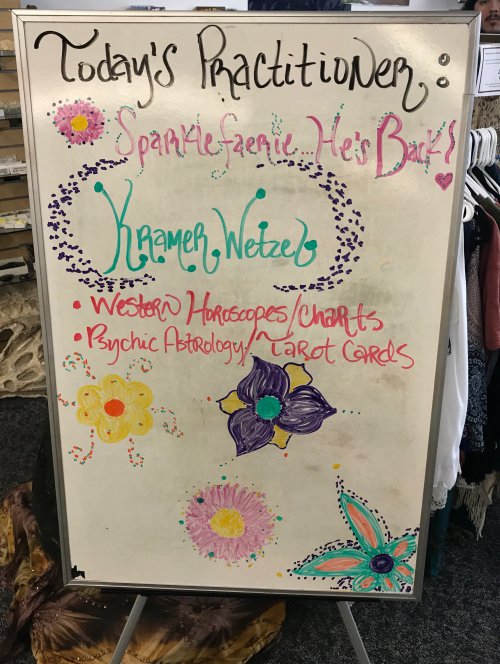 Today's Practitioner:
Sparklefaerie... He's Back!
Kramer Wetzel
• Western Horoscopes/Charts
• Psychic Astrology/Tarot Cards